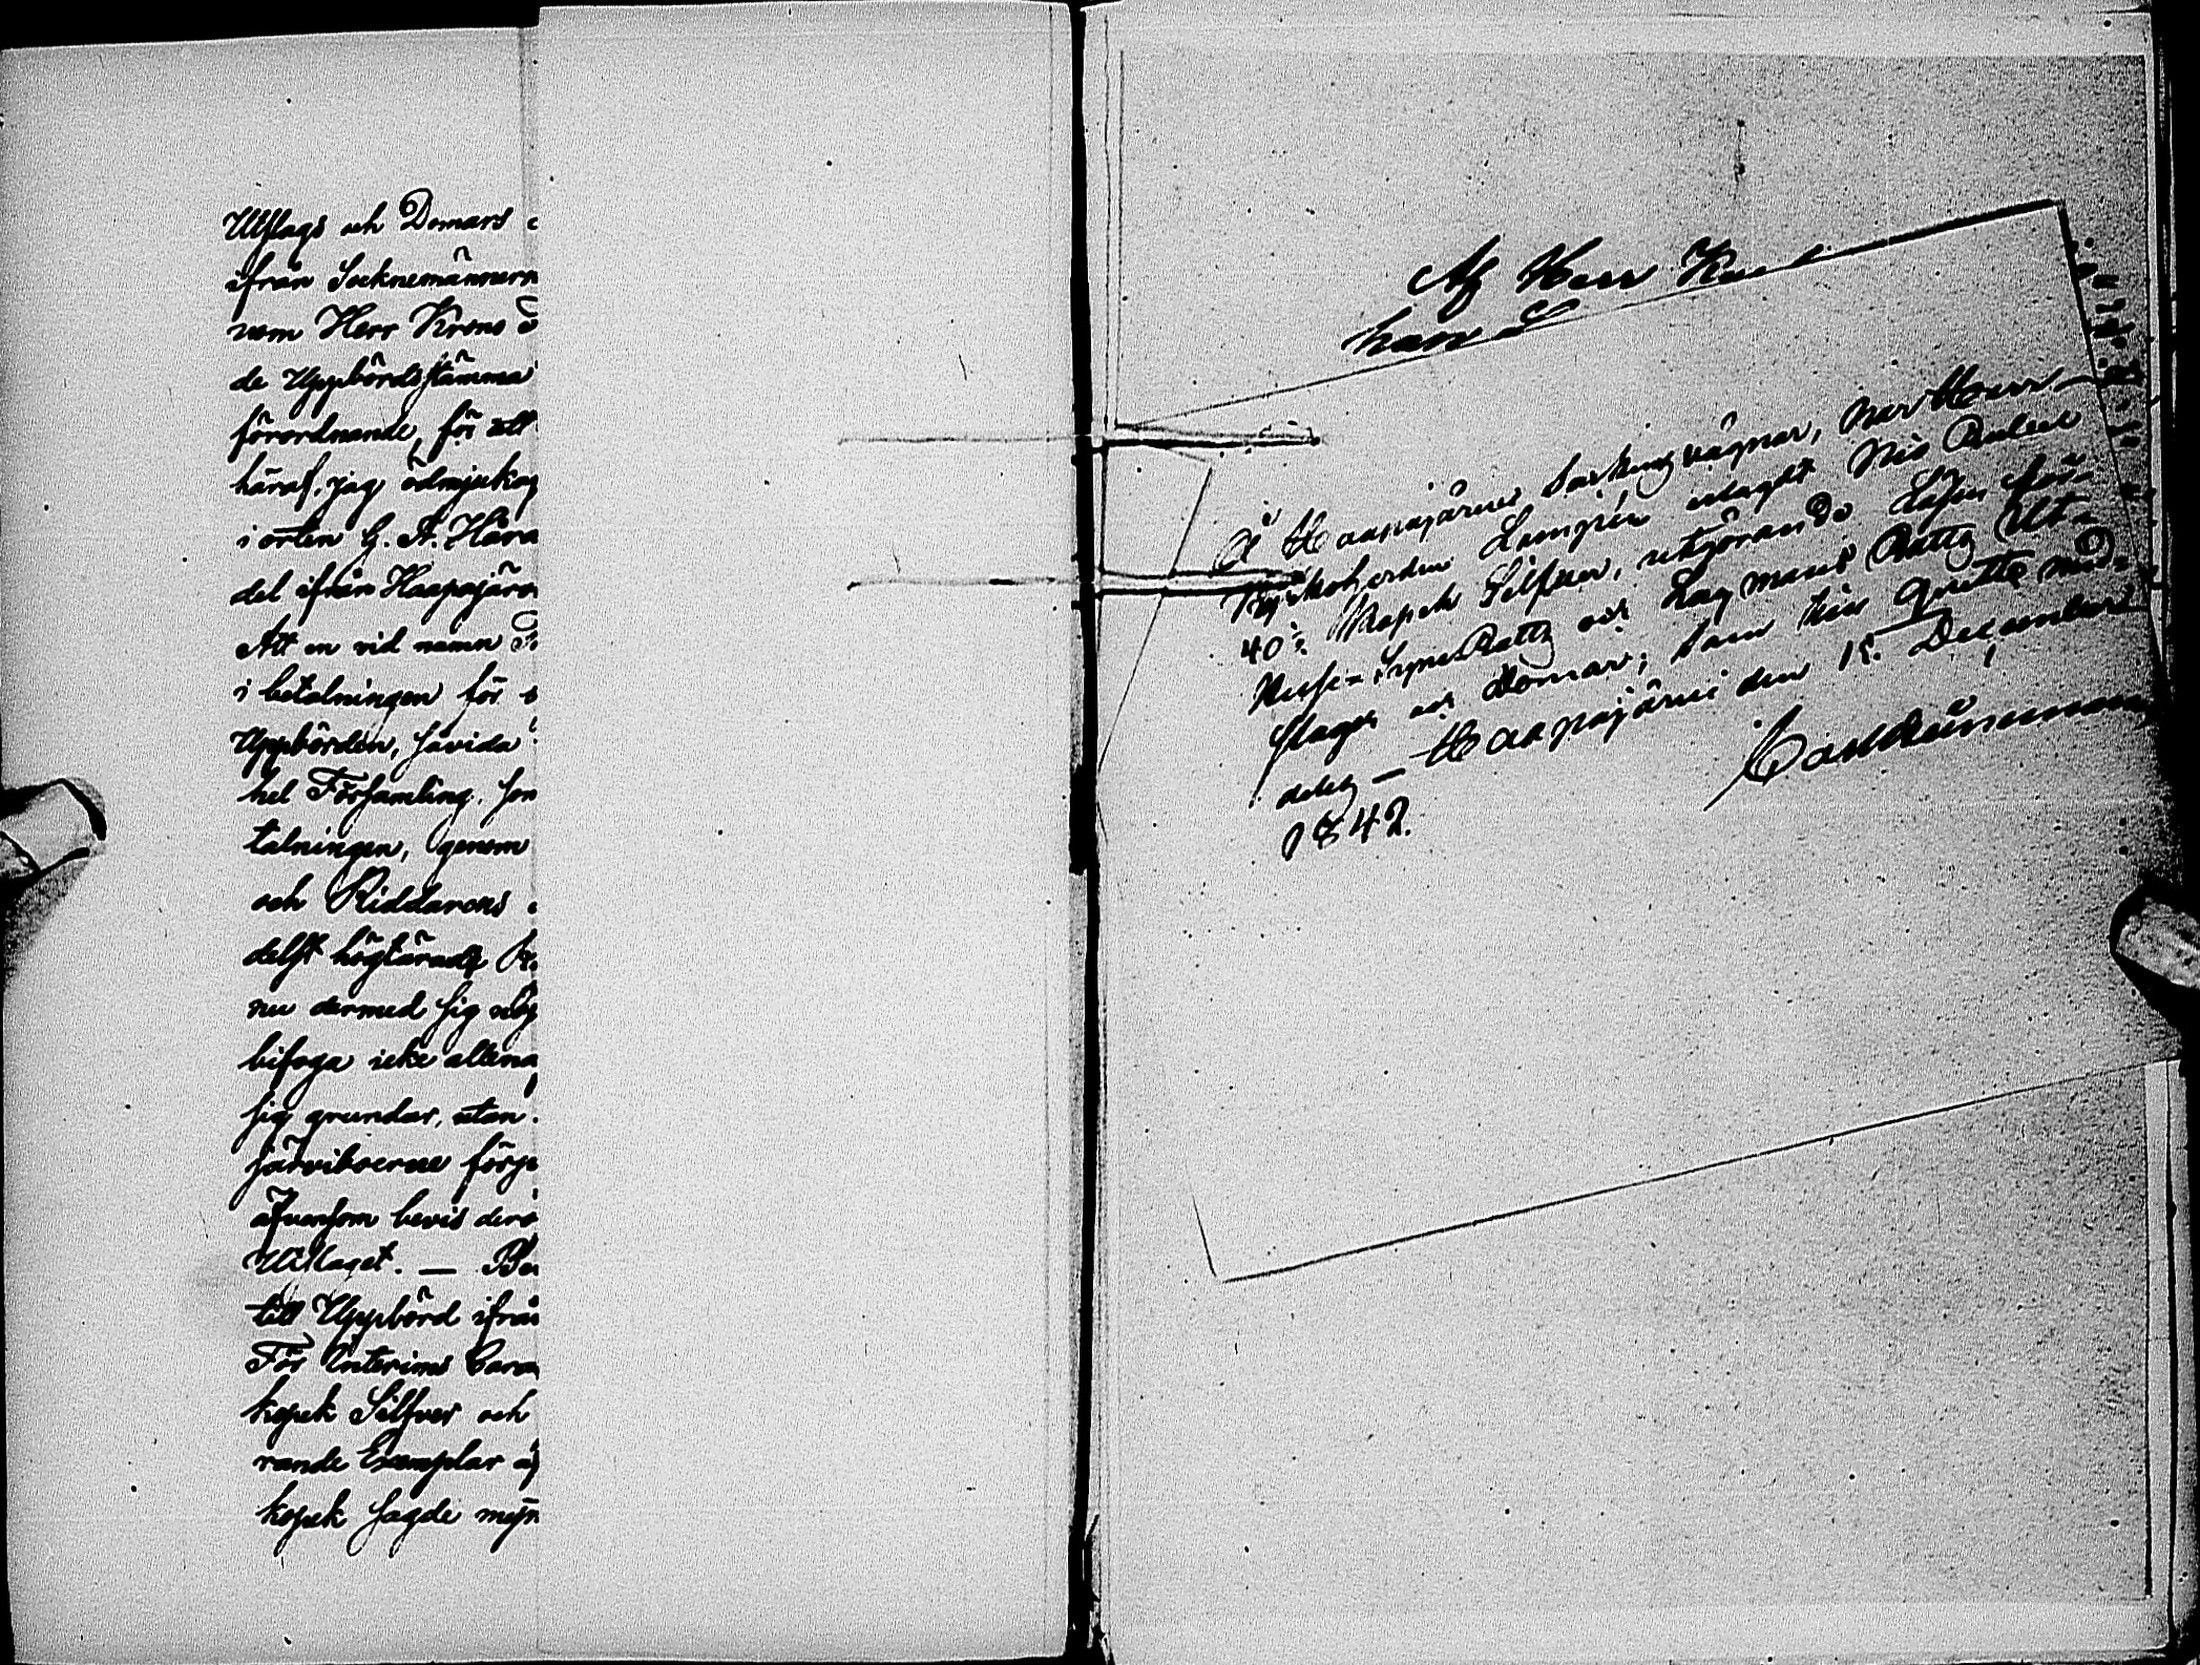 Utslags och Domars
ifrån Socknemännern
nom Herr Krono
de Uppbördsstämma
förordnande, för att
häraf, jag ödmjukas
i orten G. A. Hära
del ifrån Haapajärv
Att en vid namn
i betalningen för
Uppbörden, såvida
hel Församling, som
talningen, genom
och Riddarens
delst högtärade
nu dermed sig
bifoga icke allena
sig grundar, utan
järviboerne förge
äfvensom bevis der
Utslaget. — Be
till Uppbörd ifrån
För Interims
kopek Silfver och
rande Exemplar
kopek sagde myn
Af Herr
har
Å Haapajärvi Sockens vägnar, har Herr
Kyrkoherden Lampén erlagt Nio Rubel
40 Kopek Silfver, utgörande Lösen för
Husesyns Rätts och Lagmans Rätts Ut-
slager och Domar; som här quitteras med-
delst — Haapajärvi den 15 December
1842.
Carl